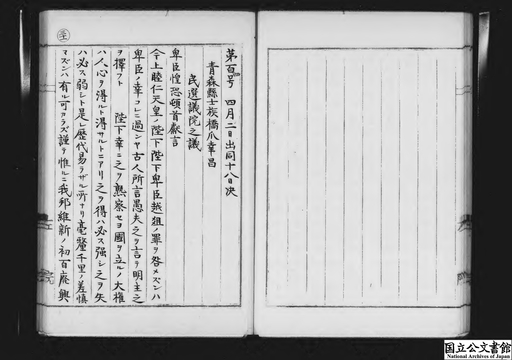 第百号 四月二日出同十八日决
青森縣士族橋爪幸昌
民選議院之議
卑臣惶恐頓首獻言
今上睦仁天皇ノ陛下陛下卑臣越狙ノ罪ヲ咎メズンハ
卑臣ノ幸コレニ過ンヤ古人所言愚夫之ヲ言ヲ明主之
ヲ擇フト 陛下幸ニ之ヲ熟察セヨ國ヲ立ルノ大権
ハ人心ヲ得ルト得サルトニアリ之ヲ得ハ必ス强シ之ヲ失
ハ必ス弱シト是レ歴代易ラザル所ナリ毫釐千里ノ差慎
マズンハ有ル可カラズ謹テ惟ルニ我邦維新ノ初百廃興
国立公文書館
National Archives of Japan